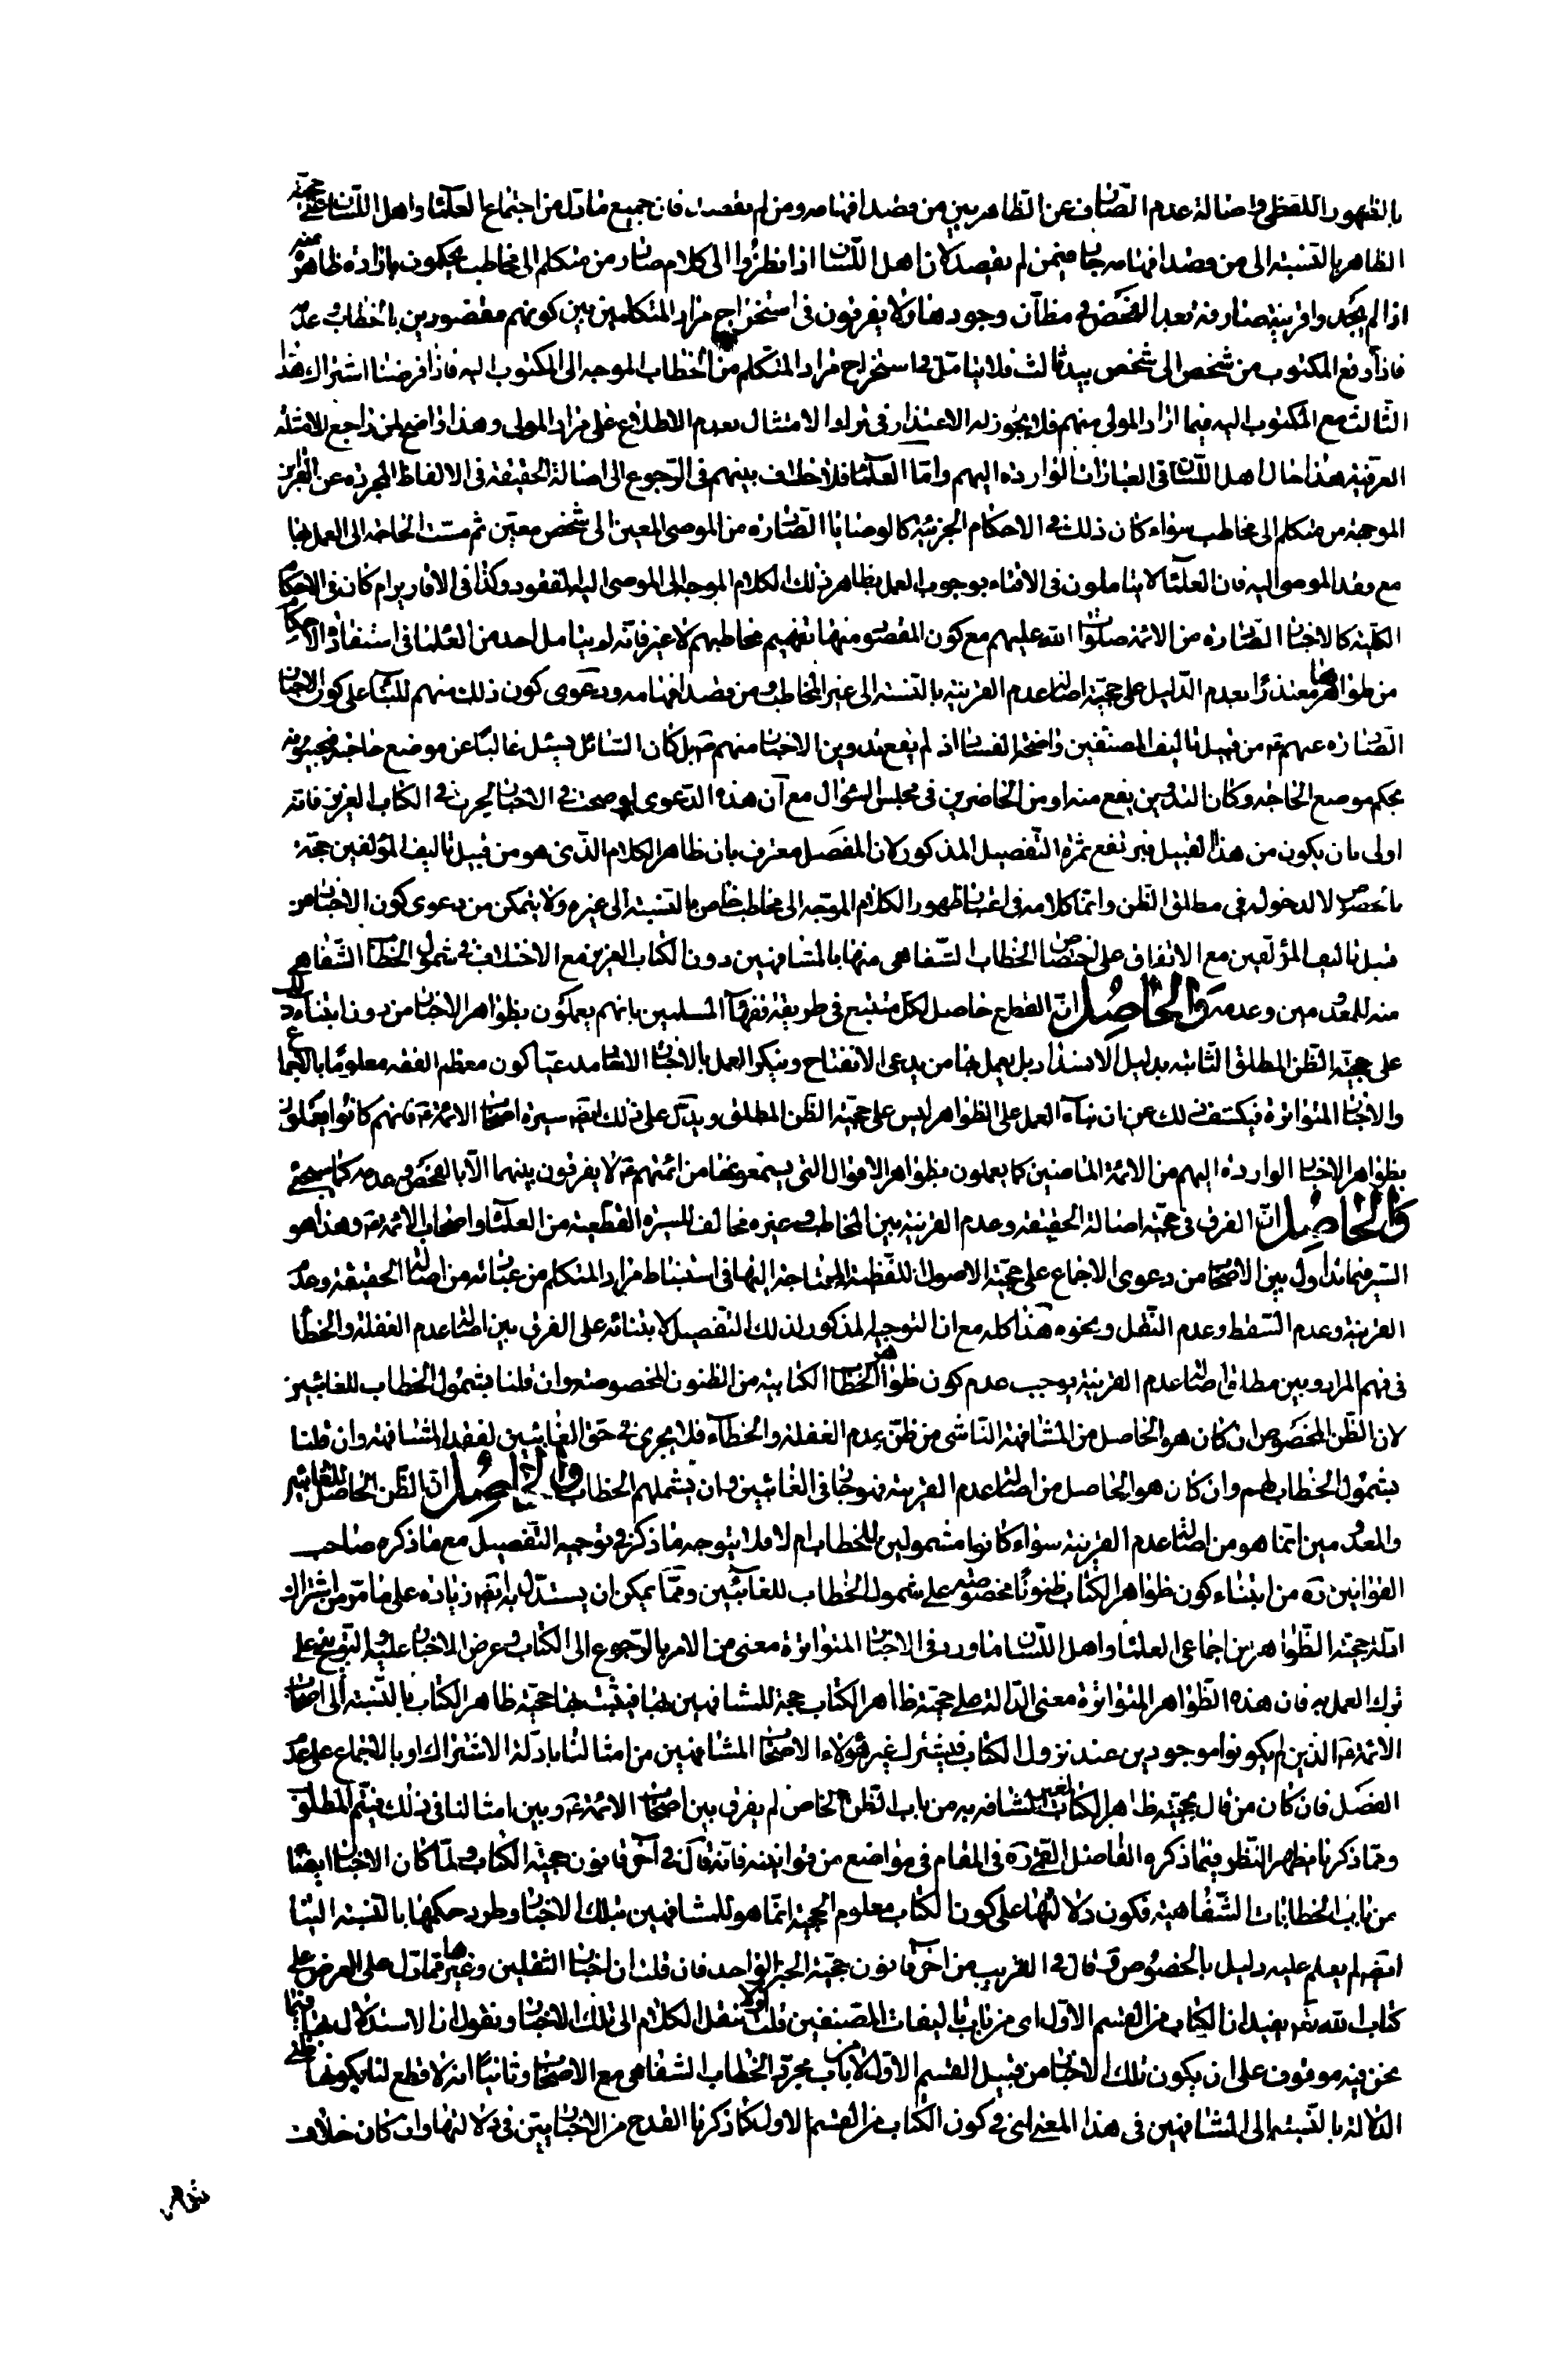 بالظهور اللفظي واصالة عدم الصارف عن الظاهر بين من قصد افهامه ومن لم يقصد فان جميع ما دل من اجماع العلماء واهل اللسان على حجية
الظاهر بالنسبة الى من قصد افهامه جار فيمن لم يقصد لان اهل اللسان اذا نظروا الى كلام صادر من متكلم الى مخاطب يحكمون بارادة ظاهره منه
اذا لم يجدوا قرينة صارفة بعد الفحص في مظان وجودها ولا يفرقون في استخراج مراد المتكلمين بين كونهم مقصودين بالخطاب وعدمه
فاذا وقع المكتوب من شخص الى شخص بيد ثالث فلا يتامل في استخراج مراد المتكلم من الخطاب الموجه الى المكتوب اليه فاذا فرضنا اشتراك هذا
الثالث مع المكتوب اليه فيما اراد المولى منهم فلا يجوز له الاعتذار في ترك الامتثال بعدم الاطلاع على مراد المولى وهذا واضح لمن راجع الامثلة
العرفية هذا حال اهل اللسان في العبارات الواردة اليهم واما العلماء فلا خلاف بينهم في الرجوع الى اصالة الحقيقة في الالفاظ المجردة عن القرائن
الموجهة من متكلم الى مخاطب سواء كان ذلك في الاحكام الجزئية كالوصايا الصادرة من الموصي المعين الى شخص معين ثم مست الحاجة الى العمل بها
مع فقد الموصى اليه فان العلماء لا يتاملون في الافتاء بوجوب العمل بظاهر ذلك الكلام الموجه الى الموصى اليه المفقود وكذا في الاقارير ام كان في الاحكام
الكلية كالاخبار الصادرة من الائمة صلوات الله عليهم مع كون المقصود منها تفهيم مخاطبهم لا غير فانه لم يتامل احد من العلماء في استفادة الاحكام
من ظواهرها معتذرا بعدم الدليل على حجية اصالة عدم القرينة بالنسبة الى غير المخاطب ومن قصد افهامه ودعوى كون ذلك منهم للبناء على كون الاخبار
الصادرة عنهم ع من قبيل تاليف المصنفين واضحة الفساد اذ لم يقع تدوين الاخبار منهم ع بل كان السائل يسئل غالبا عن موضع حاجته فيجيبونه
بحكم موضع الحاجة وكان التدوين يقع منه او من الحاضرين في مجلس السؤال مع ان هذه الدعوى لو صحت في الاخبار لجرت في الكتاب العزيز فانه
اولى بان يكون من هذا القبيل فيرتفع ثمرة التفصيل المذكور لان المفصل معترف بان ظاهر الكلام الذي هو من قبيل تاليف المؤلفين حجة
بالخصوص لا لدخوله في مطلق الظن وانما كلامه في اعتبار ظهور الكلام الموجه الى مخاطب خاص بالنسبة الى غيره ولا يتمكن من دعوى كون الاخبار من
قبيل تاليف المؤلفين مع الاتفاق على اختصاص الخطاب الشفاهي منها بالمشافهين دون الكتاب العزيز مع الاختلاف في شمول الخطاب الشفاهي
منه للمعدومين وعدمه والحاصل ان القطع حاصل لكل متتبع في طريقة فقهاء المسلمين بانهم يعملون بظواهر الاخبار من دون ابتناء ذلك
على حجية الظن المطلق الثابتة بدليل الانسداد بل يعمل بها من يدعي الانفتاح وينكر العمل بالاخبار الاحاد مدعيا كون معظم الفقه معلوما بالاجماع
والاخبار المتواترة فيكشف ذلك عن ان بناء العمل على الظواهر ليس على حجية الظن المطلق ويدل على ذلك ايضا سيرة اصحاب الائمة ع فانهم كانوا يعملون
بظواهر الاخبار الواردة اليهم من الائمة الماضين كما يعملون بظواهر الاقوال التي يستمعونها من ائمتهم ع لا يفرقون بينهما الا بالفحص وعدمه كما سيجئ
والحاصل ان الفرق في حجية اصالة الحقيقة وعدم القرينة بين المخاطب وغيره مخالف للسيرة القطعية من العلماء واصحاب الائمة ع وهذا هو
السر فيما تداول بين الاصحاب من دعوى الاجماع على حجية الاصول اللفظية المحتاجة اليها في استنباط مراد المتكلم من عباراته من اصالة الحقيقة وعدم
القرينة وعدم السقط وعدم النقل ونحوه هذا كله مع ان التوجيه المذكور لذلك التفصيل لابتنائه على الفرق بين اصالة عدم الغفلة والخطأ
في فهم المراد وبين مطلق اصالة عدم القرينة يوجب عدم كون ظواهر الخطابات الكتابية من الظنون المخصوصة وان قلنا بشمول الخطاب للغائبين
لان الظن المخصوص ان كان هو الحاصل من المشافهة الناشي من ظن عدم الغفلة والخطاء فلا يجري في حق الغائبين لفقد المشافهة وان قلنا
بشمول الخطاب لهم وان كان هو الحاصل من اصالة عدم القرينة فهو جار في الغائبين وان لم يشملهم الخطاب والحاصل ان الظن الحاصل للغائبين
والمعدومين انما هو من اصالة عدم القرينة سواء كانوا مشمولين للخطاب ام لا فلا يتوجه ما ذكر في توجيه التفصيل مع ما ذكره صاحب
القوانين ره من ابتناء كون ظواهر الكتاب ظنونا مخصوصة على شمول الخطاب للغائبين ومما يمكن ان يستدل به ايضا زيادة على ما مر من اشتراك
ادلة حجية الظواهر من اجماعي العلماء واهل اللسان ما ورد في الاخبار المتواترة معنى من الامر بالرجوع الى الكتاب وعرض الاخبار عليه والتوبيخ على
ترك العمل به فان هذه الظواهر المتواترة معنى الدالة على حجية ظاهر الكتاب حجة للمشافهين بها فيثبت بها حجية ظاهر الكتاب بالنسبة الى اصحاب
الائمة ع الذين لم يكونوا موجودين عند نزول الكتاب فيشترك غير هؤلاء الاصحاب المشافهين من امثالنا بادلة الاشتراك او بالاجماع على عدم
الفصل فان كان من قال بحجية ظاهر الكتاب لغير المشافه به من باب الظن الخاص لم يفرق بين اصحاب الائمة ع وبين امثالنا في ذلك فيتم المطلق
ومما ذكرنا يظهر النظر فيما ذكره الفاضل القمي ره في المقام في مواضع من قوانينه فانه قال في آخر قانون حجية الكتاب ولما كان الاخبار ايضا
من باب الخطابات الشفاهية فكون دلالتها على كون الكتاب معلوم الحجية انما هو للمشافهين بتلك الاخبار وطرد حكمها بالنسبة الينا
ايضا لم يعلم عليه دليل بالخصوص وقال في القريب من آخر قانون حجية الخبر الواحد فان قلت ان اخبار الثقلين وغيرها مما دل على العرض على
كتاب الله تع يفيد ان الكتاب من القسم الاول اى من باب تاليفات المصنفين قلت اولا ننقل الكلام الى تلك الاخبار ونقول ان الاستدلال بها فيما
نحن فيه موقوف على ان يكون تلك الاخبار من قبيل القسم الاول لا من باب مجرد الخطاب الشفاهي مع الاصحاب وثانيا انه لا قطع لنا بكونها ظني
الدلالة بالنسبة الى المشافهين في هذا المعنى اعني في كون الكتاب من القسم الاول كما ذكرنا القدح من الاخباريين في دلالتها وان كان خلاف